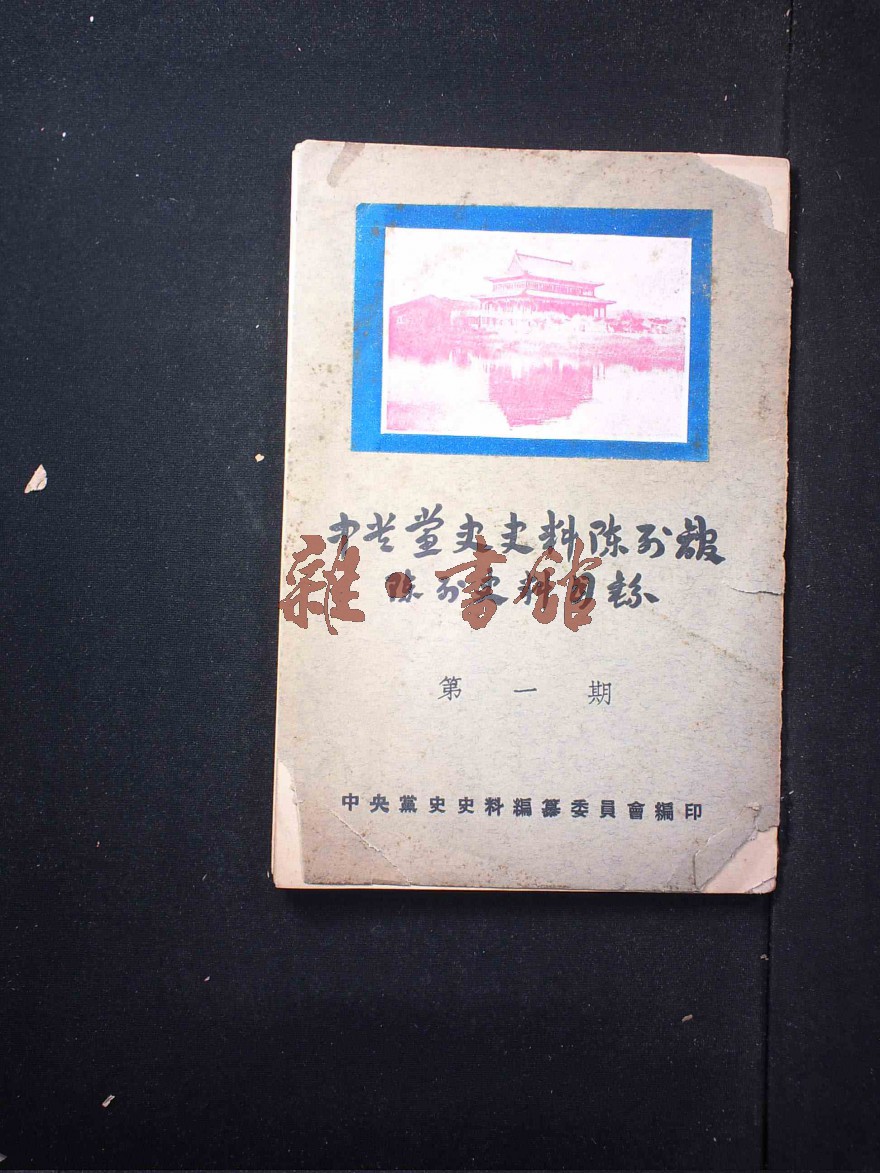 中央黨史史料陈列館
陈列史料目録
雜·書館
第一期
中央黨史史料編纂委員會編印